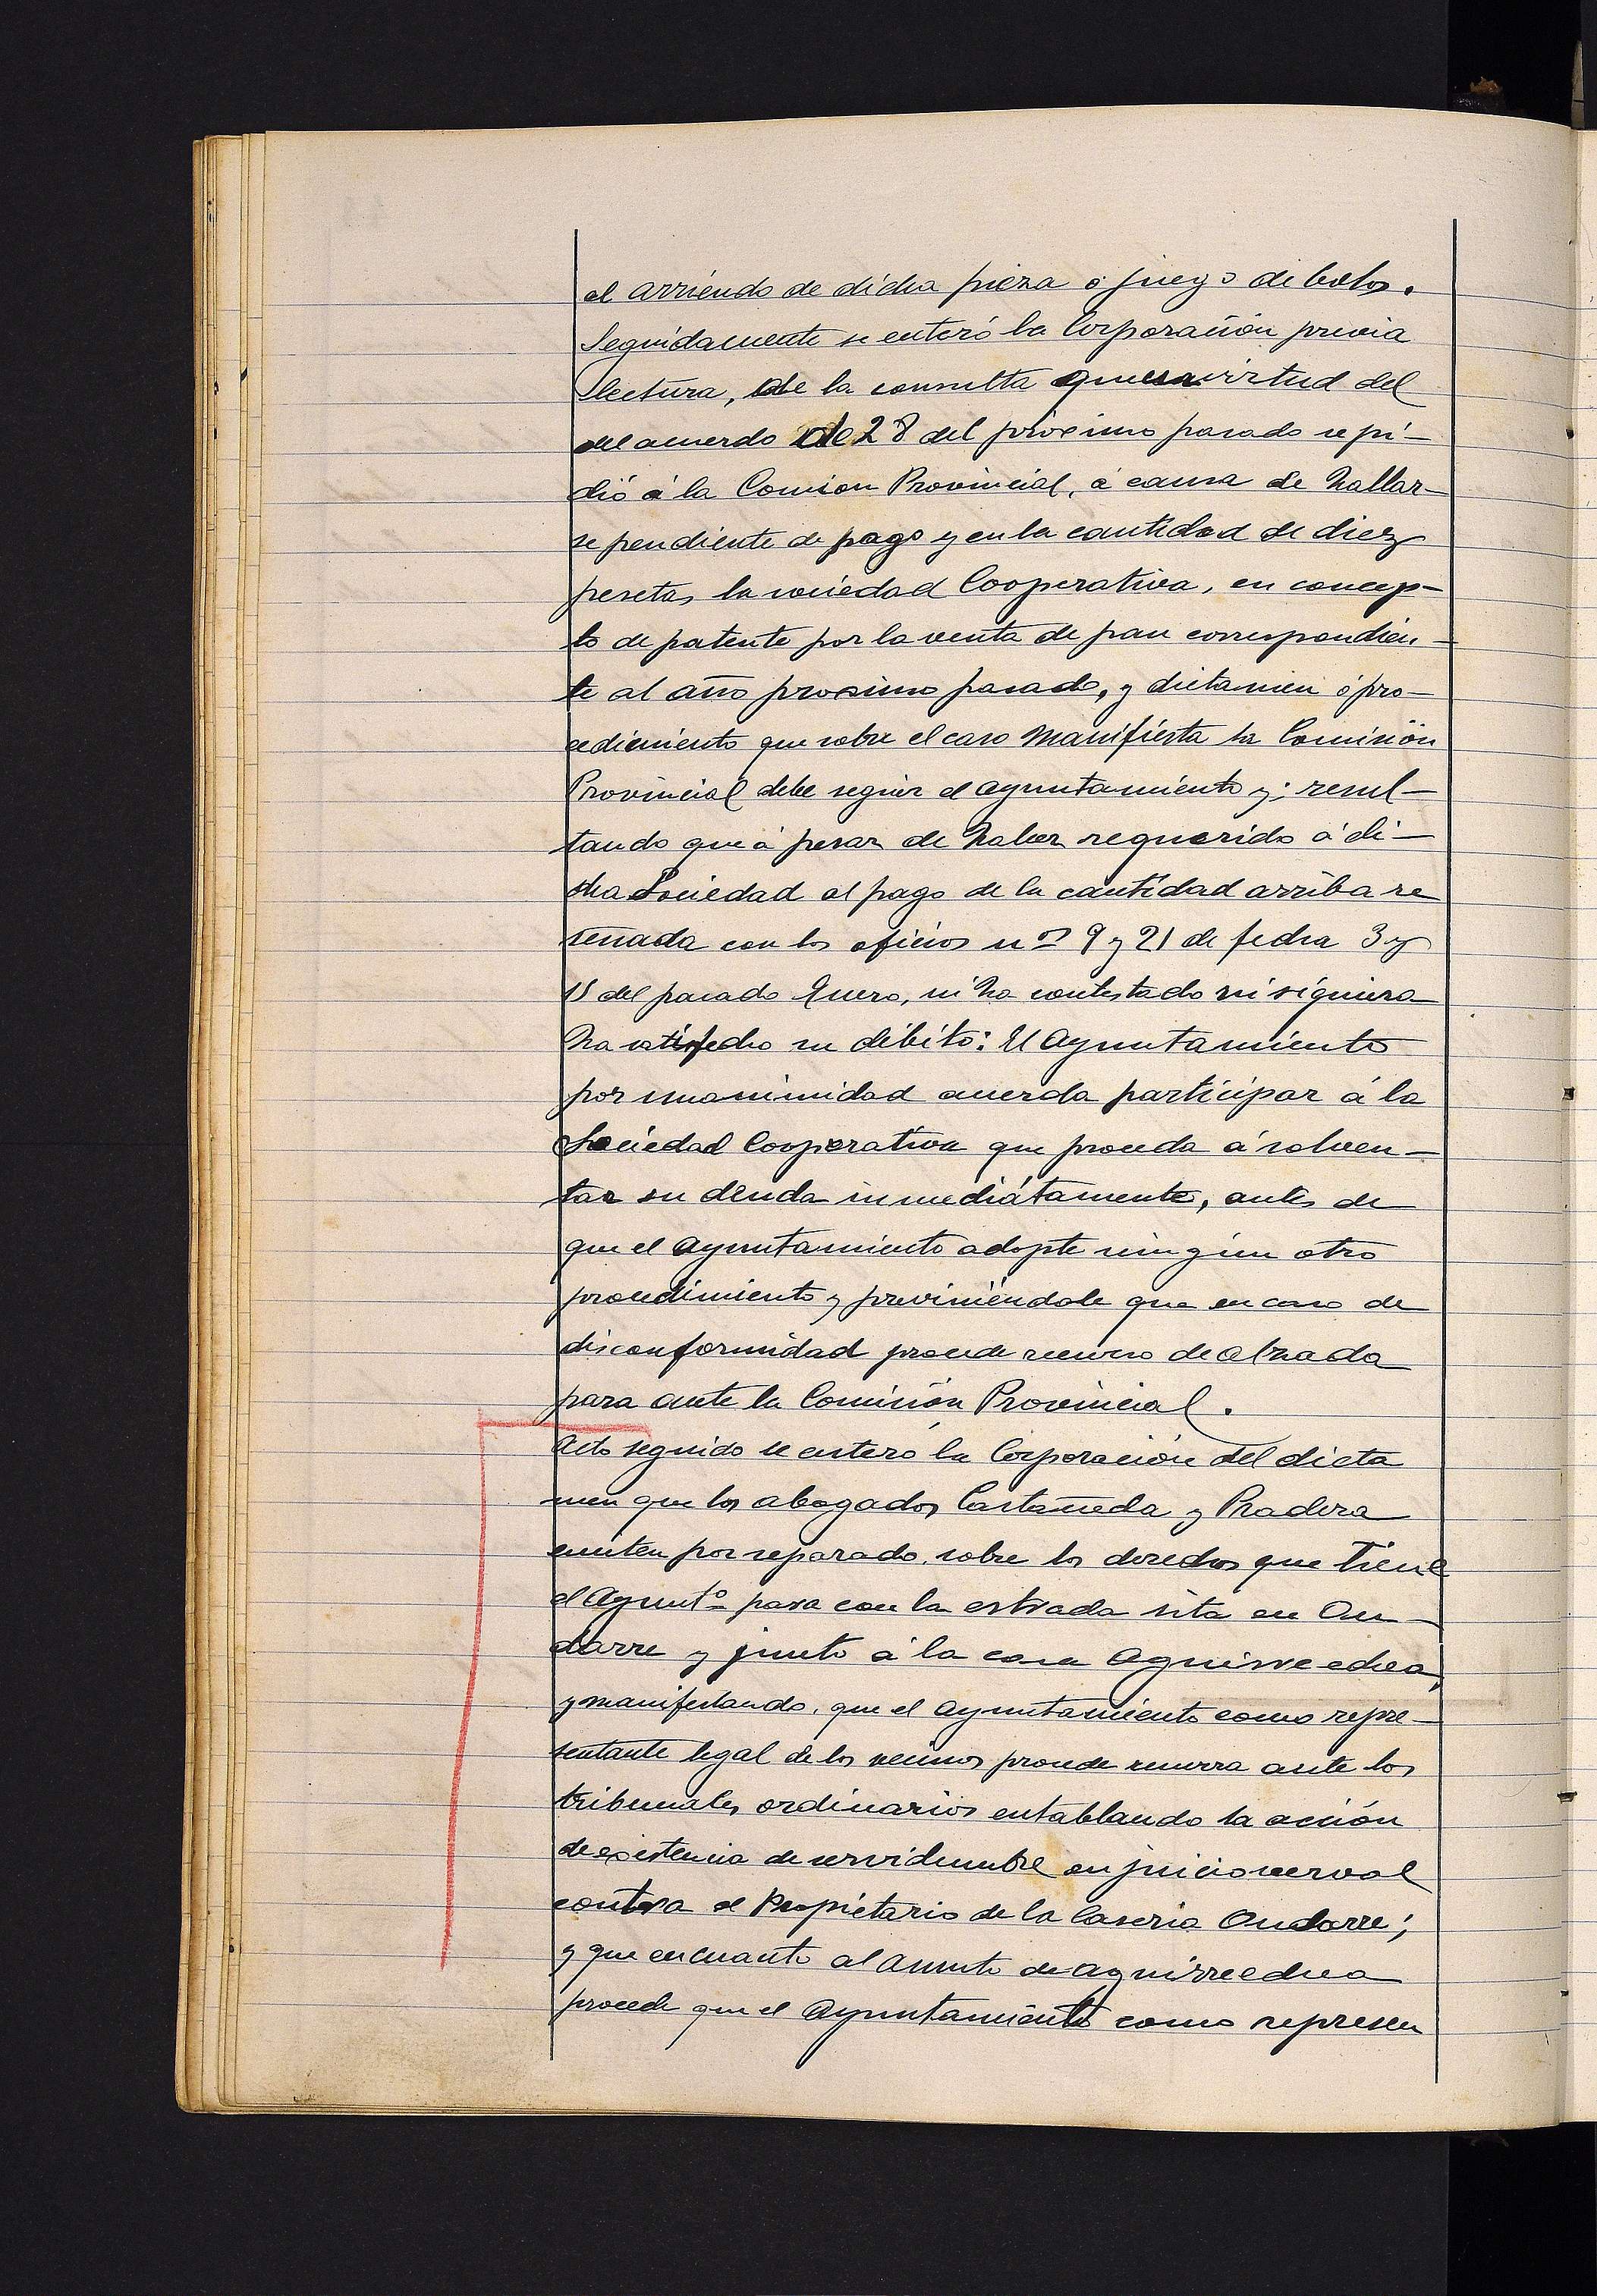 el arriendo de dicha pieza ó juego de bolos.
Seguidamente se enteró la Corporación previa
lectura, de la consulta que en virtud del
del acuerdo de 28 del próximo pasado se pi-
dió á la Comision Provincial, á causa de hallar-
se pendiente de pago y en la cantidad de diez
pesetas la sociedad Cooperativa, en concep-
to de patente por la venta de pan correspondien-
te al año proximo pasado, y dictamen ó pro-
cedimiento que sobre el caso manifiesta la Comisión
Provincial debe seguir el ayuntamiento y; resul-
tando que á pesar de haber requerido á di-
cha Sociedad al pago de la cantidad arriba re
señada con los oficios nos 9 y 21 de fecha 3 y
15 del pasado Enero, ni ha contestado ni siquiera
ha satisfecho su débito: El Ayuntamiento
por unanimidad acuerda participar á la
Sociedad Cooperativa que proceda á solven-
tar su deuda inmediátamente, antes de
que el Ayuntamiento adopte ningún otro
procedimiento y previniéndole que en caso de
disconformidad procede recurso de alzada
para ante la Comisión Provincial.
Acto seguido se enteró la Corporación del dicta
men que los abogados Castañeda y Pradera
emiten por separado, sobre los derechos que tiene
el Ayuntº para con la estrada sita en On-
darre y junto á la casa Aguirreechea,
y manifestando, que el Ayuntamiento como repre-
sentante legal de los vecinos procede recurra ante los
tribunales ordinarios entablando la acción
de existencia de servidumbre en juicio verval
contra el Propietario de la Caseria Ondarre;
y que en cuanto al asunto de Aguirreechea
procede que el Ayuntamiento como represen